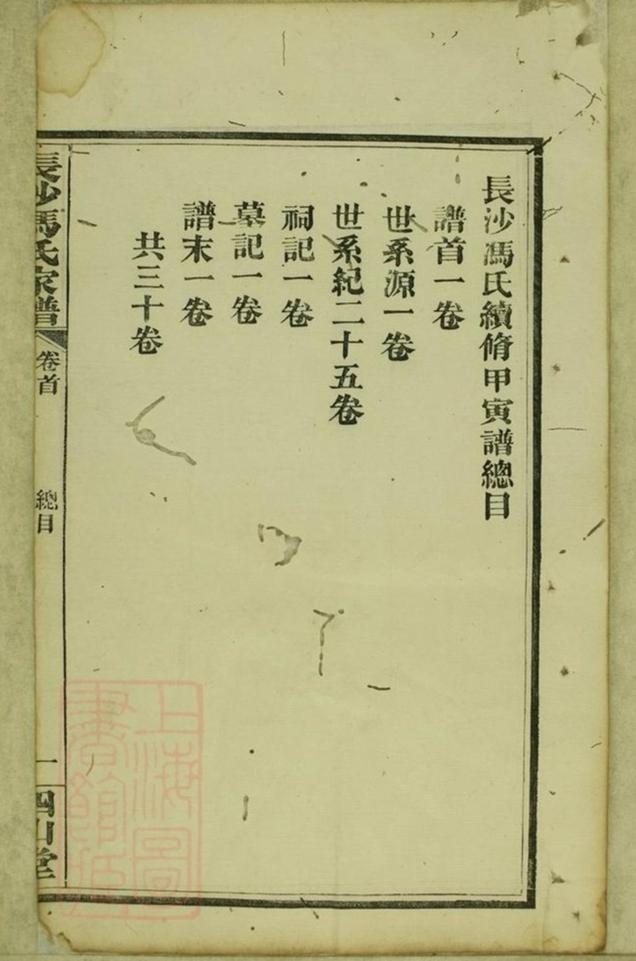 長沙馮氏續脩甲寅譜總目
譜首一卷
世系源一卷
世系紀二十五卷
祠記一卷
墓記一卷
譜末一卷
共三十卷
長沙馮氏家譜
卷首
總目
一
四山堂
上海圖
書館藏